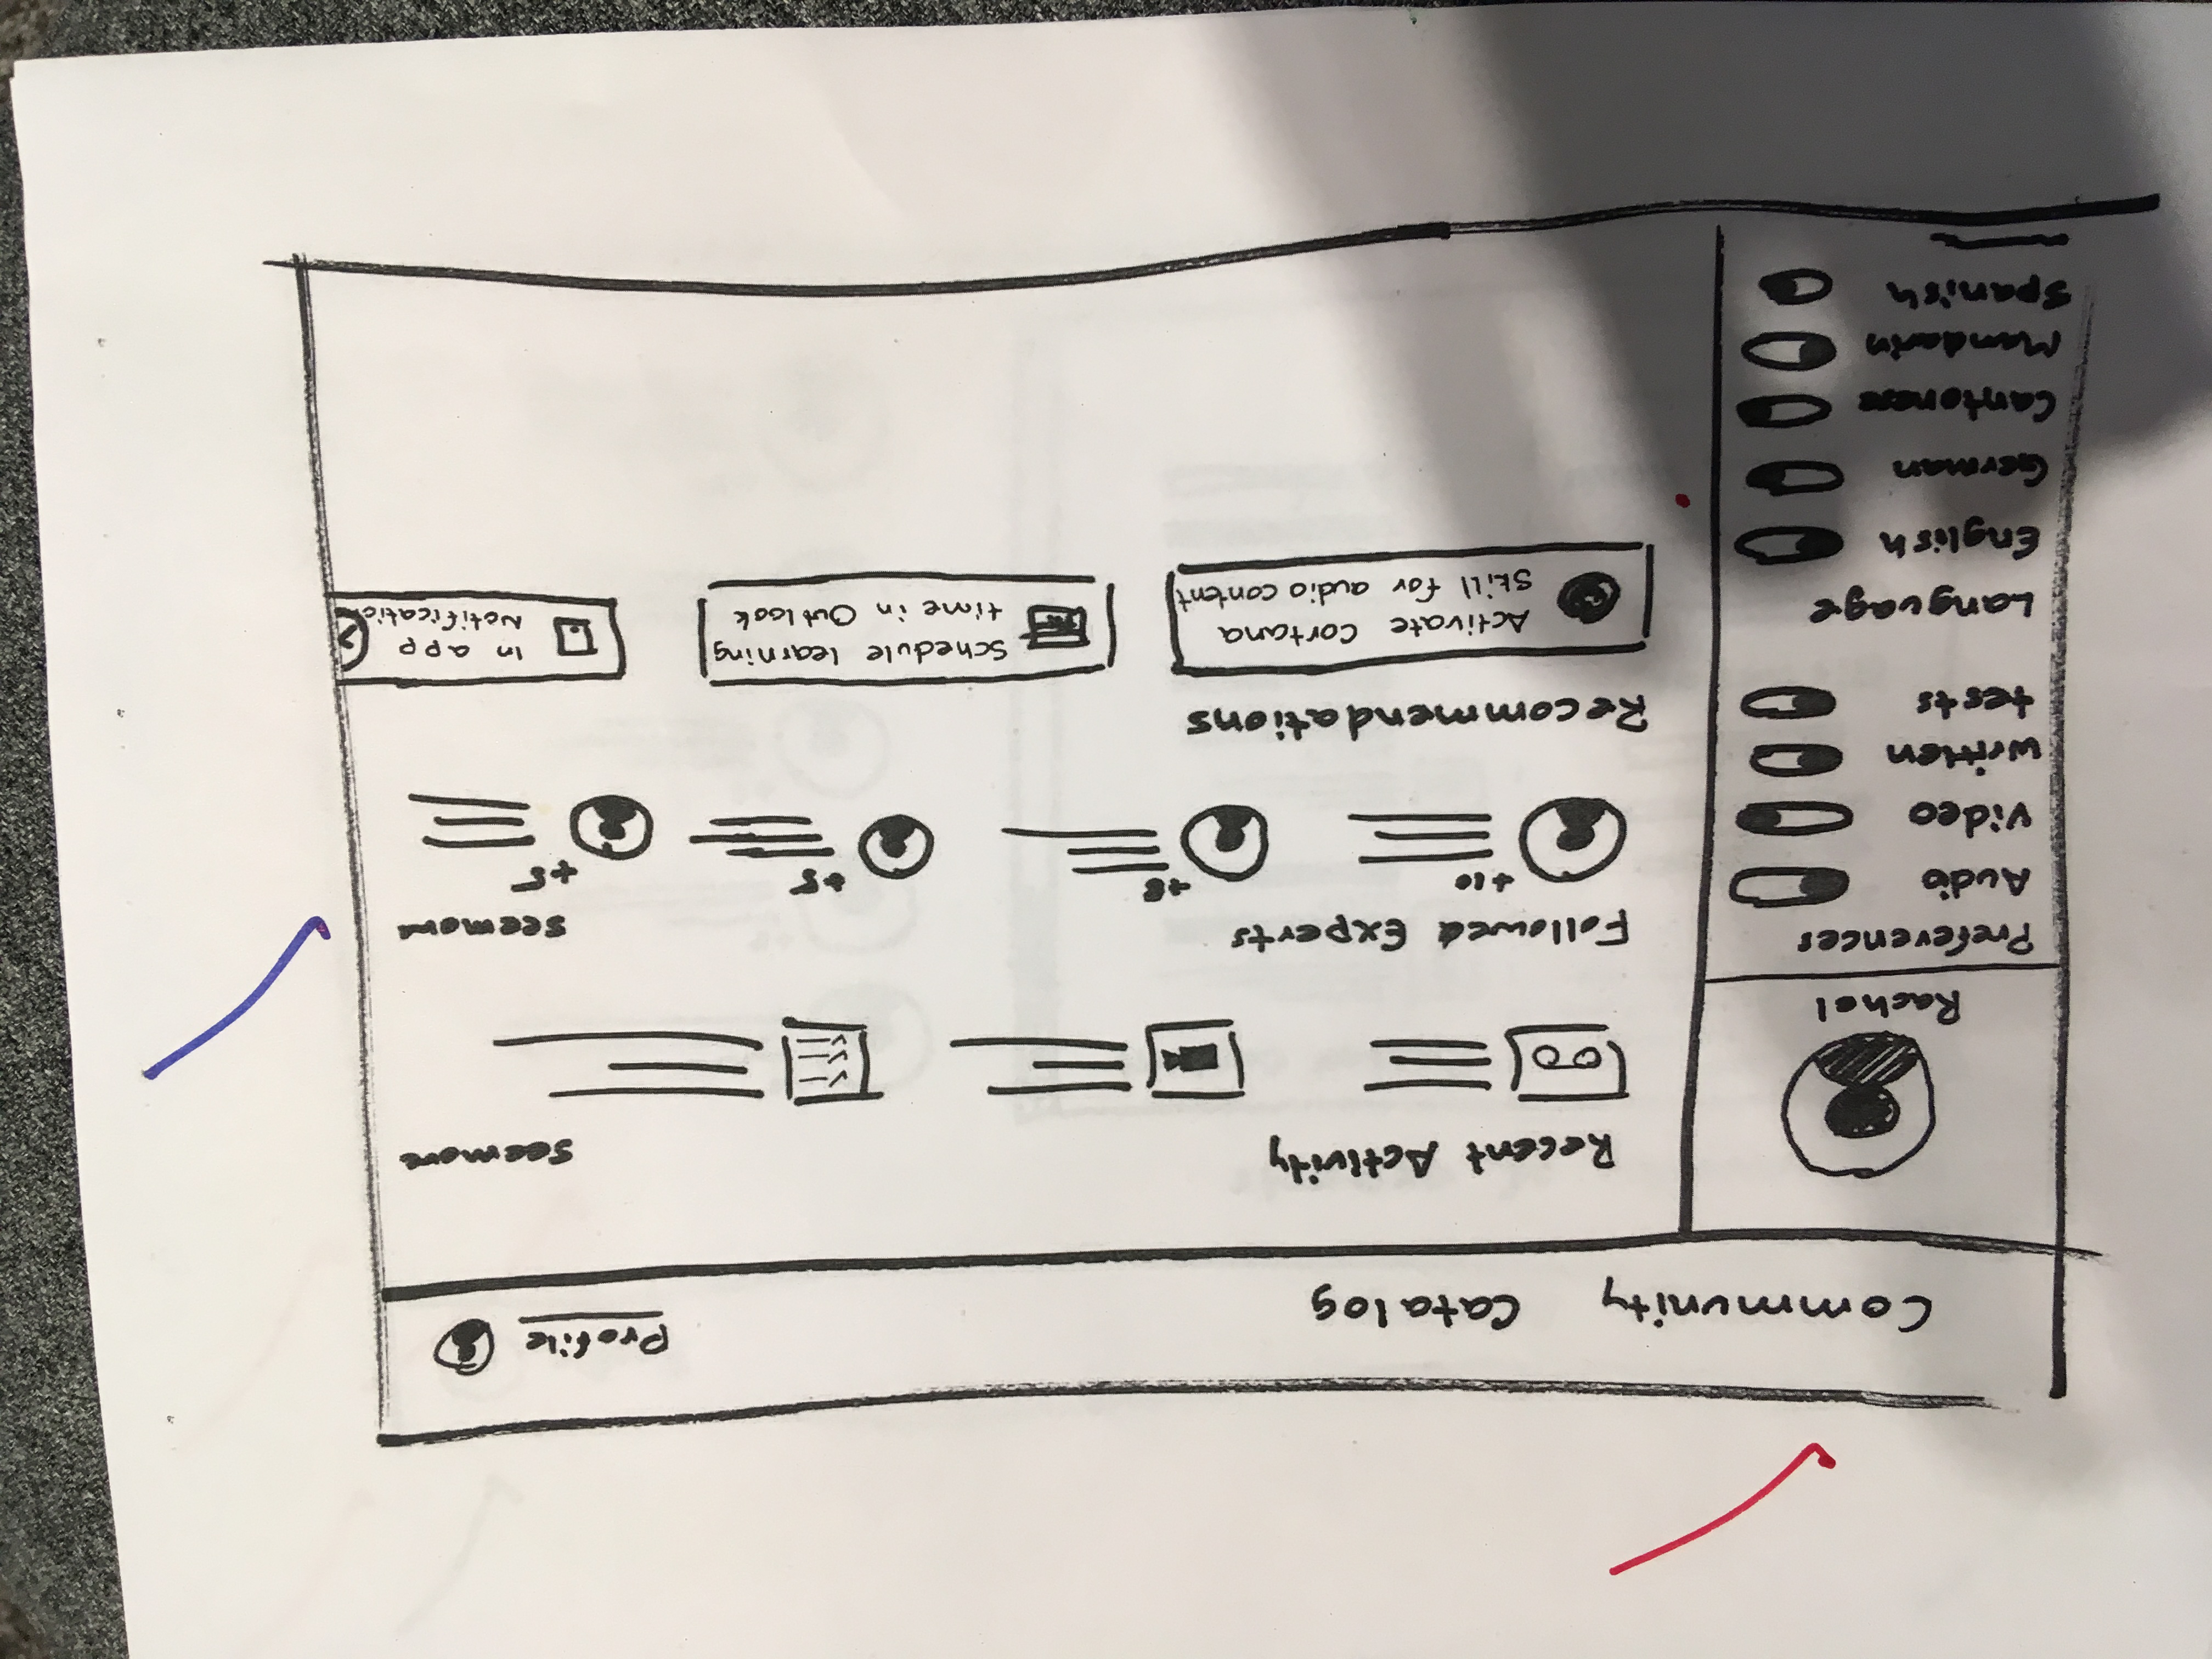 Community Catalog Profile
Rachel
Preferences
Audio
Video
written
tests
Language
English
German
Cantonese
Mandarin
Spanish
Recent Activity
Seemore
Followed Experts
Seemore
+10
+8
+5
+5
Recommendations
Activate Cortana
Skill for audio content
Schedule learning
time in Outlook
In app
Notification